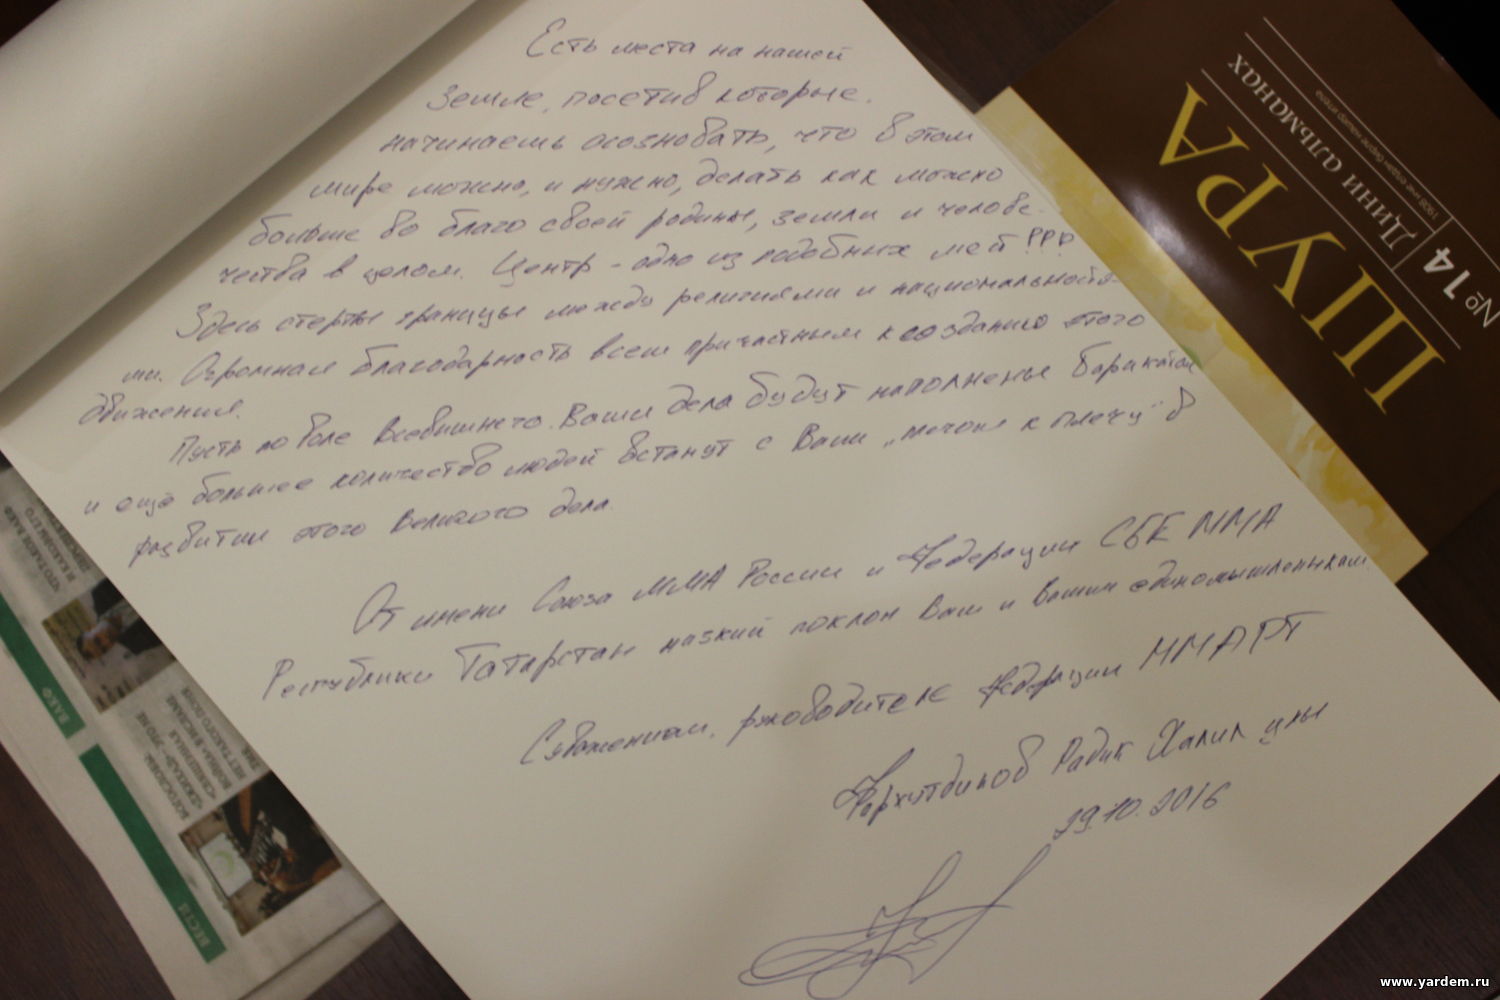 Есть места на нашей
Земле, посетив которые.
начинаешь осозновать, что в этом
мире можно, и нужно, делать как можно
больше во благо своей родины, земли и челове-
чества в целом. Центр - одно из подобных мест!!!
Здесь стерты границы между религиями и национальностя-
ми. Огромная благодарность всем причастным к созданию этого
движения.
Пусть по воле Всевышнего. Ваши дела будут наполнены Баракатом
и ещё большее количество людей встанут с Вами „плечом к плечу" в
развитии этого Великого дела.
От имени Союза ММА России и Федерации СБЕ ММА
Республики Татарстан низкий поклон Вам и Вашим единомышленникам
С уважением, руководитель Федерации ММА РТ
Фархутдинов Радик Халил улы
29.10.2016
ШУРА
Дини альманах
№ 14
ЧТО ТАКОЕ ВАКФ
ВАКФ
БОГОСЛОВЫ:
«ДЖИХАД» – ЭТО НЕ
«СВЯЩЕННАЯ
ВОЙНА», В ИСЛАМЕ
НЕТ ТАКОГО ПОНЯ-
ТИЯ
ВЕСТИ
www.yardem.ru